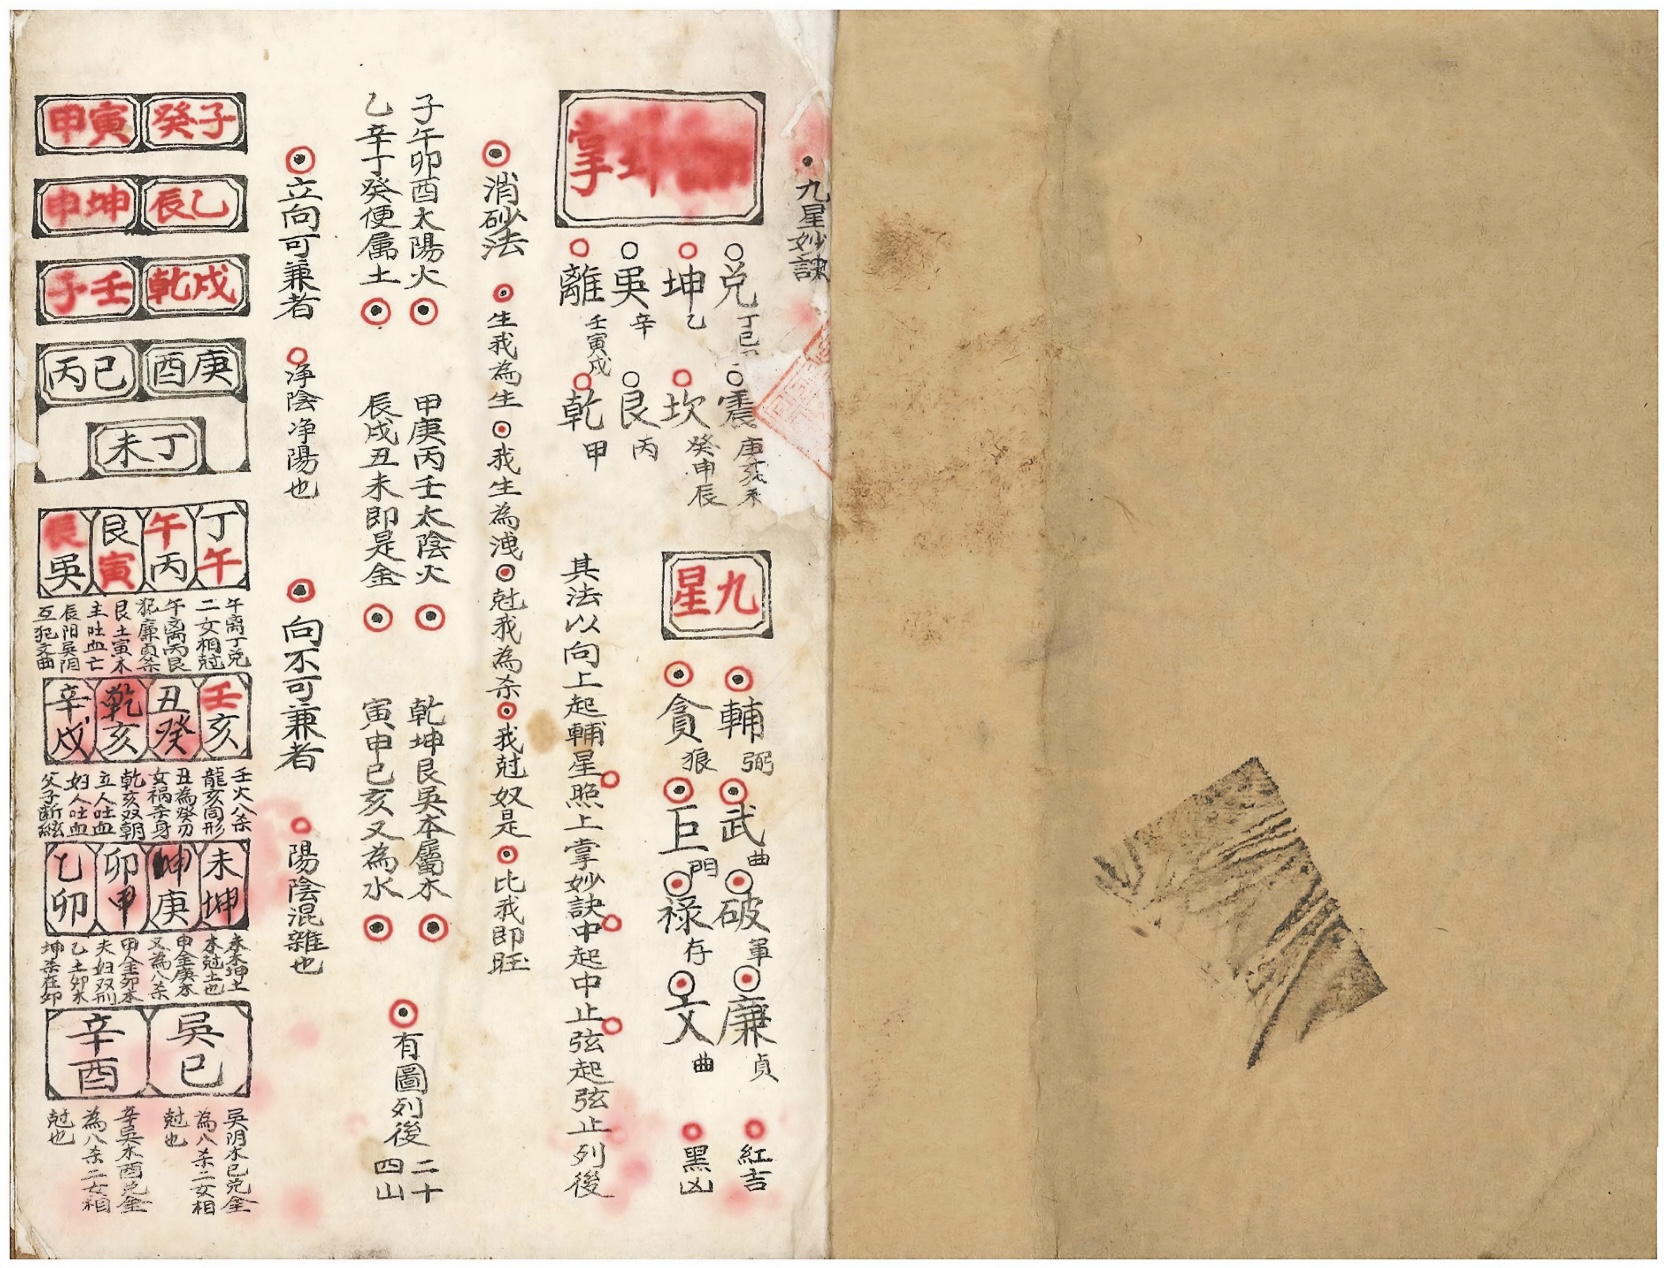 九星妙訣
坤掌
兌 丁巳
震 庚亥未
坤 乙
坎 癸申辰
吳 辛
艮 丙
離 壬寅戌
乾 甲
九星
輔弼
武曲
破軍
廉貞
紅吉
貪狼
巨門
祿存
文曲
黑凶
其法以向上起輔星照上掌妙訣中起中止弦起弦止列後
消砂法
生我為生
我生為洩
尅我為杀
我尅奴是
比我即旺
子午卯酉太陽火
甲庚丙壬太陰火
乾坤艮吳本屬木
乙辛丁癸便属土
辰戌丑未即是金
寅申巳亥又為水
有圖列後
二十四山
立向可兼者
净陰净陽也
向不可兼者
陽陰混雜也
癸子
寅甲
乙辰
坤申
戌乾
壬子
庚酉
巳丙
丁未
丁午
午丙
艮寅
辰吳
午离丁兌
二女相尅
午离丙艮
犯廉貞杀
艮土寅木
主吐血亡
辰阳吳阴
互犯文曲
壬亥
丑癸
乾亥
辛戌
壬火八杀
龍亥同形
丑為癸刃
女祸杀身
乾亥双朝
立人吐血
妇人吐血
父子断絃
未坤
坤庚
卯甲
乙卯
未木坤土
木尅土也
申金庚木
又為八杀
甲金卯木
夫妇双刑
乙土卯木
坤杀在卯
吳巳
辛酉
吳阴木巳兌金
為八杀二女相
尅也
辛吳木酉兌金
為八杀二女相
尅也